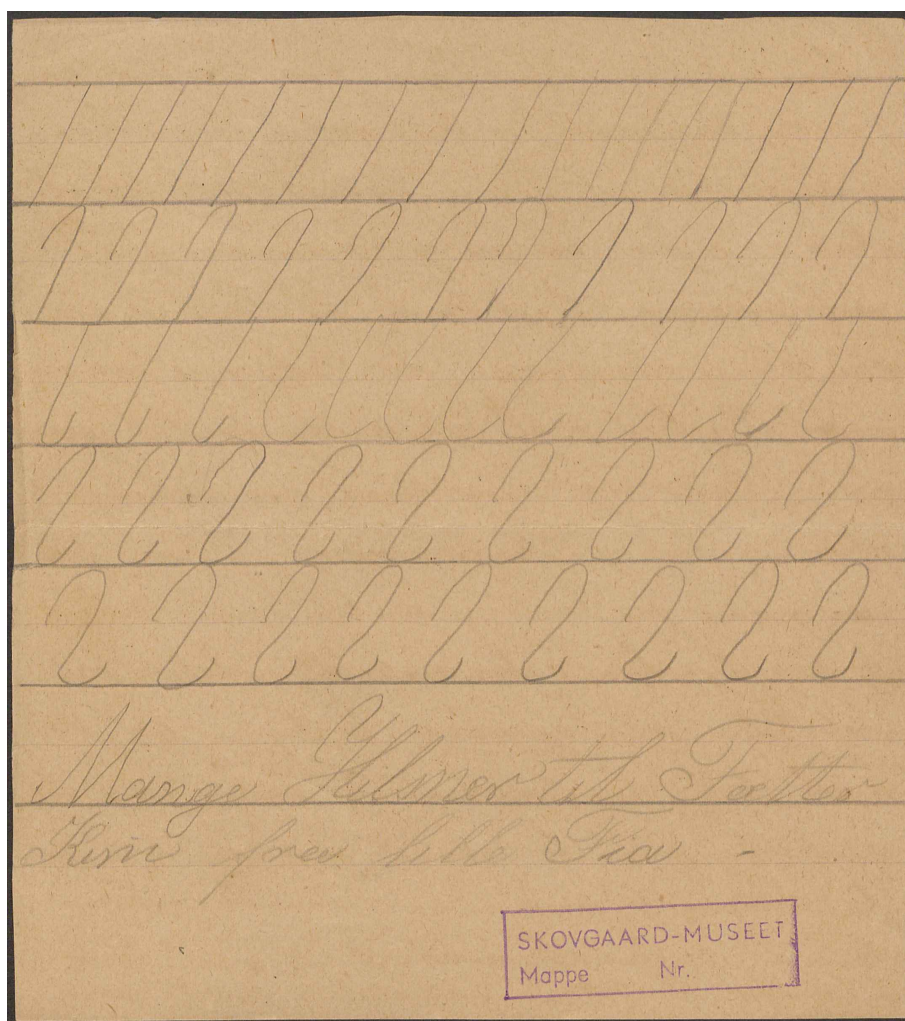 Mange Hilsner til Fætter
Kim fra lille Fia -
SKOVGAARD-MUSEET
Mappe Nr.